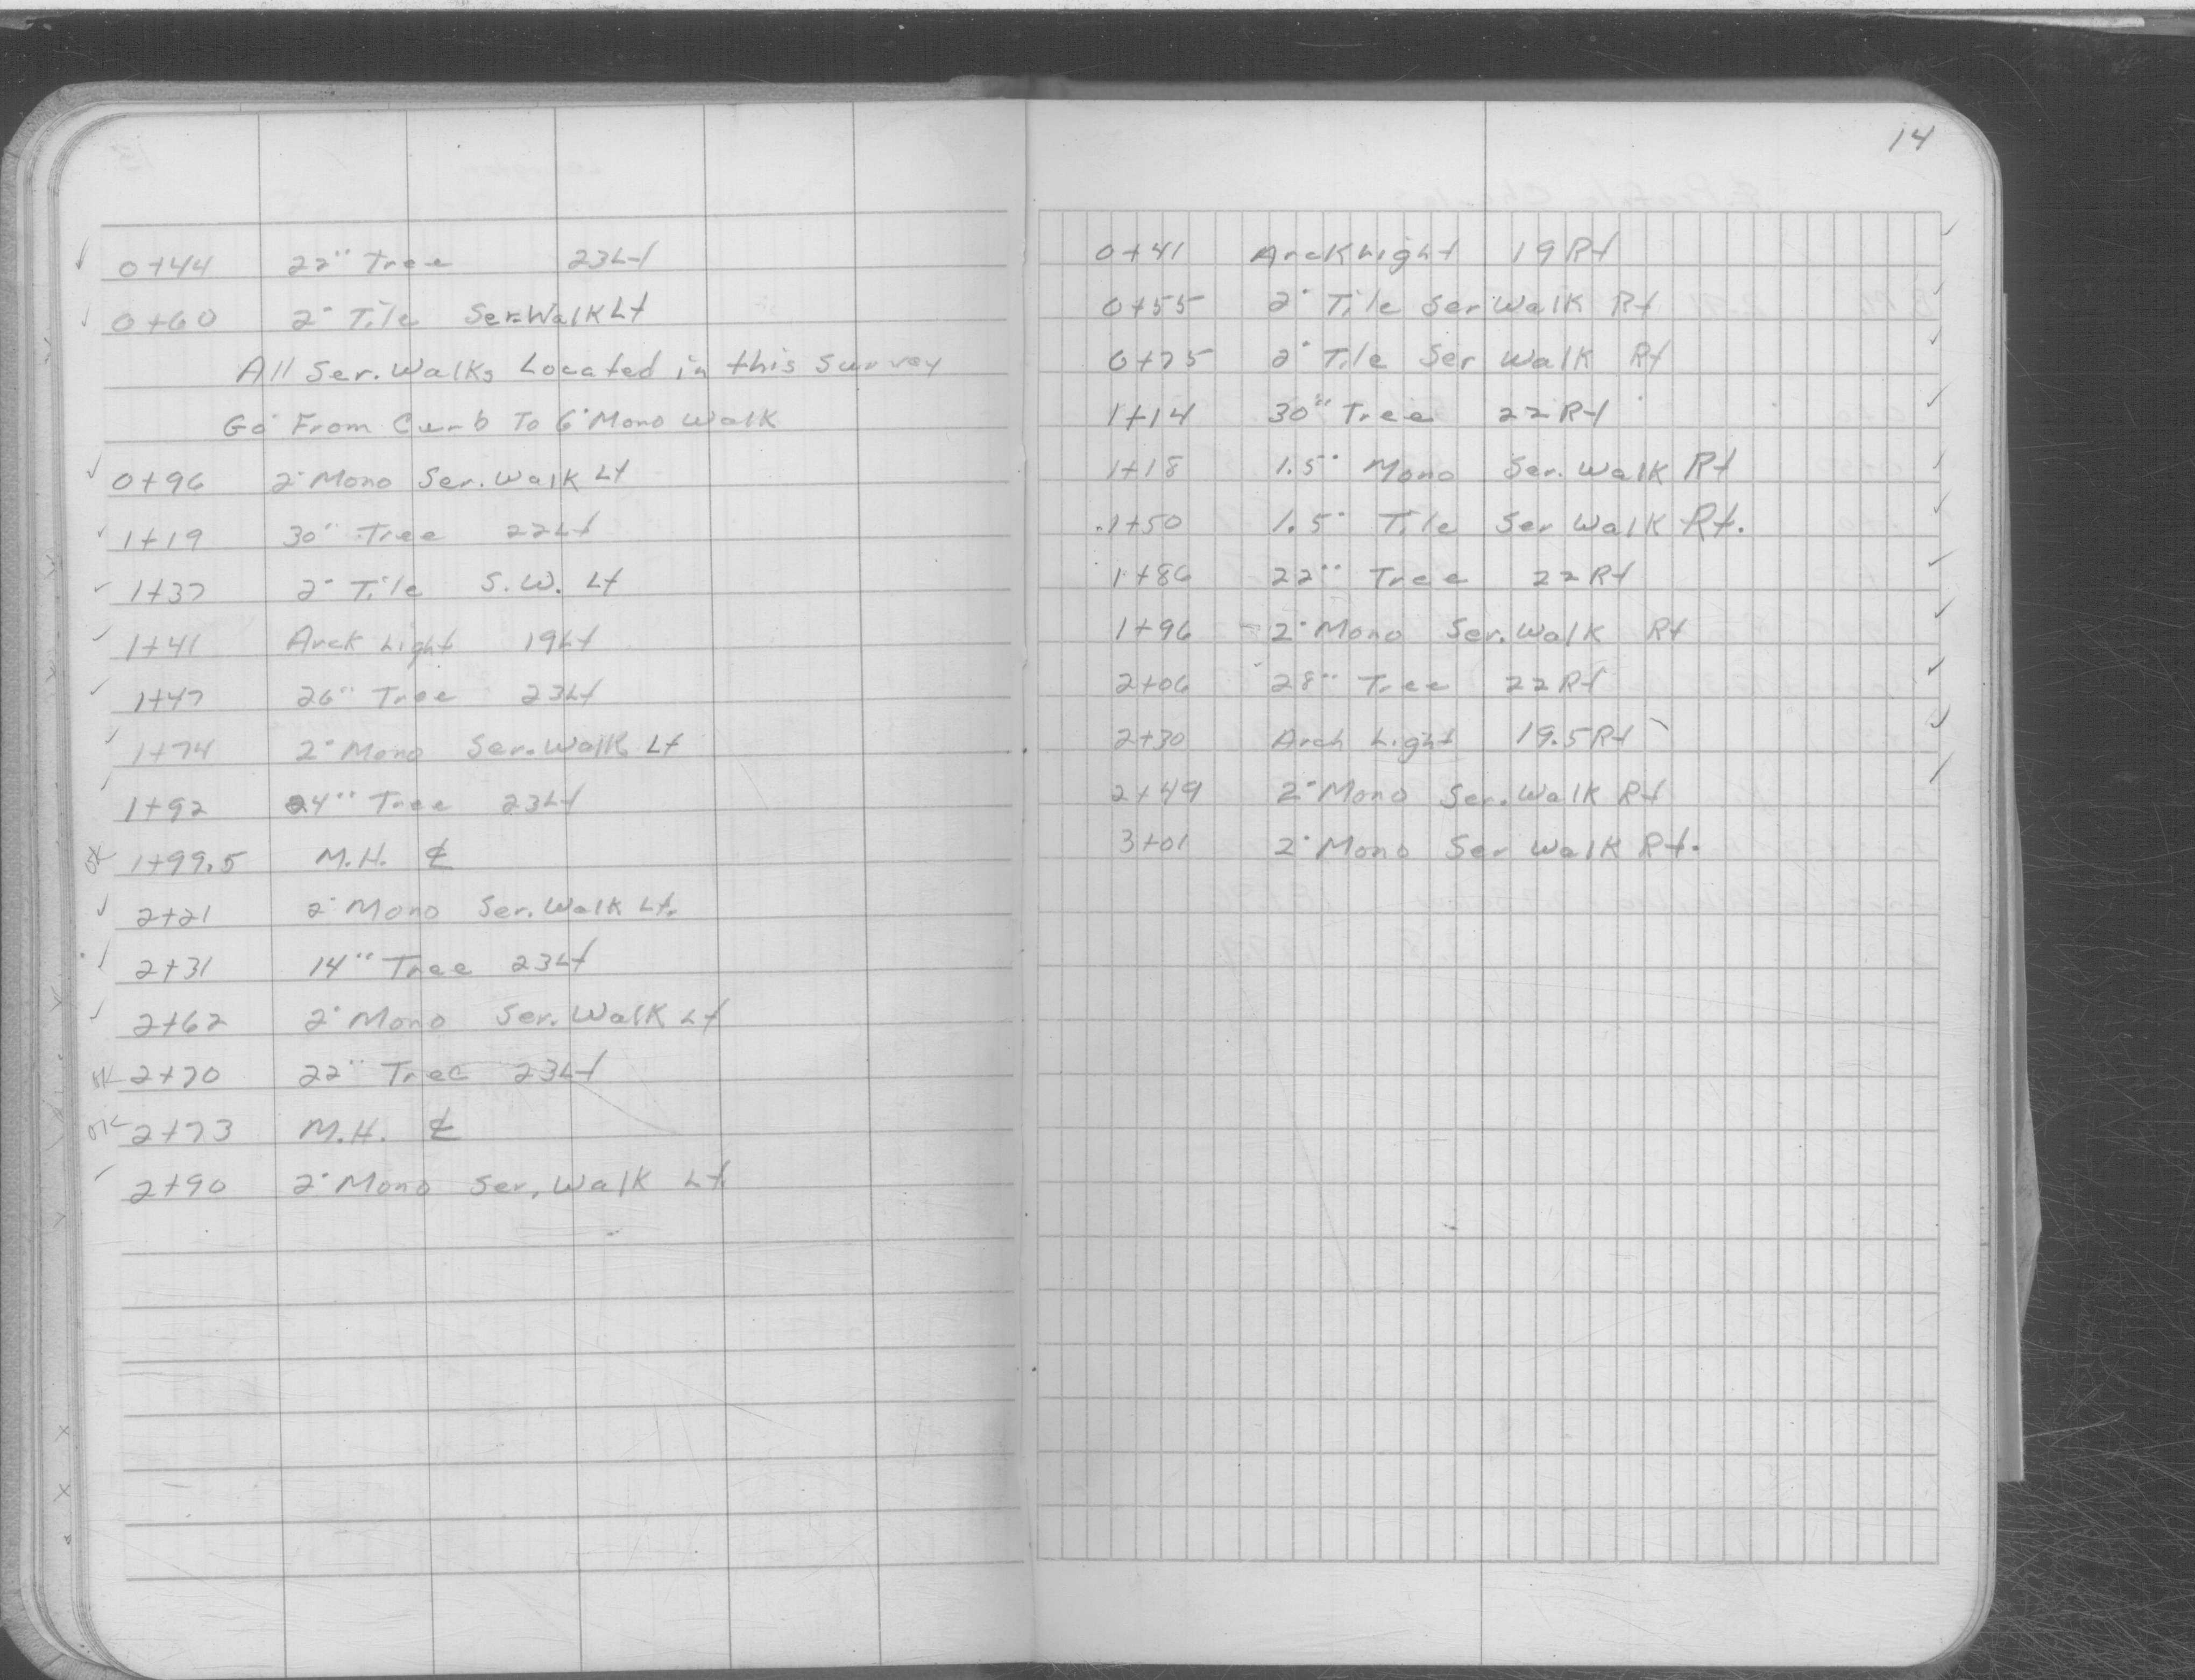 14
✓ 0+44 22" Tree 23Lt
✓ 0+60 2' Tile Ser. Walk Lt
All Ser. Walks Located in this Survey
Go From Curb To 6' Mono Walk
✓ 0+96 2' Mono Ser. Walk Lt
✓ 1+19 30" Tree 22Lt
✓ 1+37 2' Tile S.W. Lt
✓ 1+41 Arck Light 19Lt
✓ 1+47 26" Tree 23Lt
✓ 1+74 2' Mono Ser. Walk Lt
✓ 1+92 24" Tree 23Lt
OK 1+99.5 M.H. ℄
✓ 2+21 2' Mono Ser. Walk Lt.
✓ 2+31 14" Tree 23Lt
✓ 2+62 2' Mono Ser. Walk Lt
OK 2+70 22" Tree 23Lt
OK 2+73 M.H. ℄
✓ 2+90 2' Mono Ser. Walk Lt
0+41 Arck Light 19 Rt ✓
0+55 2' Tile Ser Walk Rt ✓
0+75 2' Tile Ser Walk Rt ✓
1+14 30" Tree 22 Rt ✓
1+18 1.5' Mono Ser. Walk Rt ✓
1+50 1.5' Tile Ser Walk Rt. ✓
1+86 22" Tree 22 Rt ✓
1+96 2' Mono Ser. Walk Rt ✓
2+06 28" Tree 22 Rt ✓
2+30 Arch Light 19.5 Rt ✓
2+49 2' Mono Ser. Walk Rt ✓
3+01 2' Mono Ser Walk Rt.